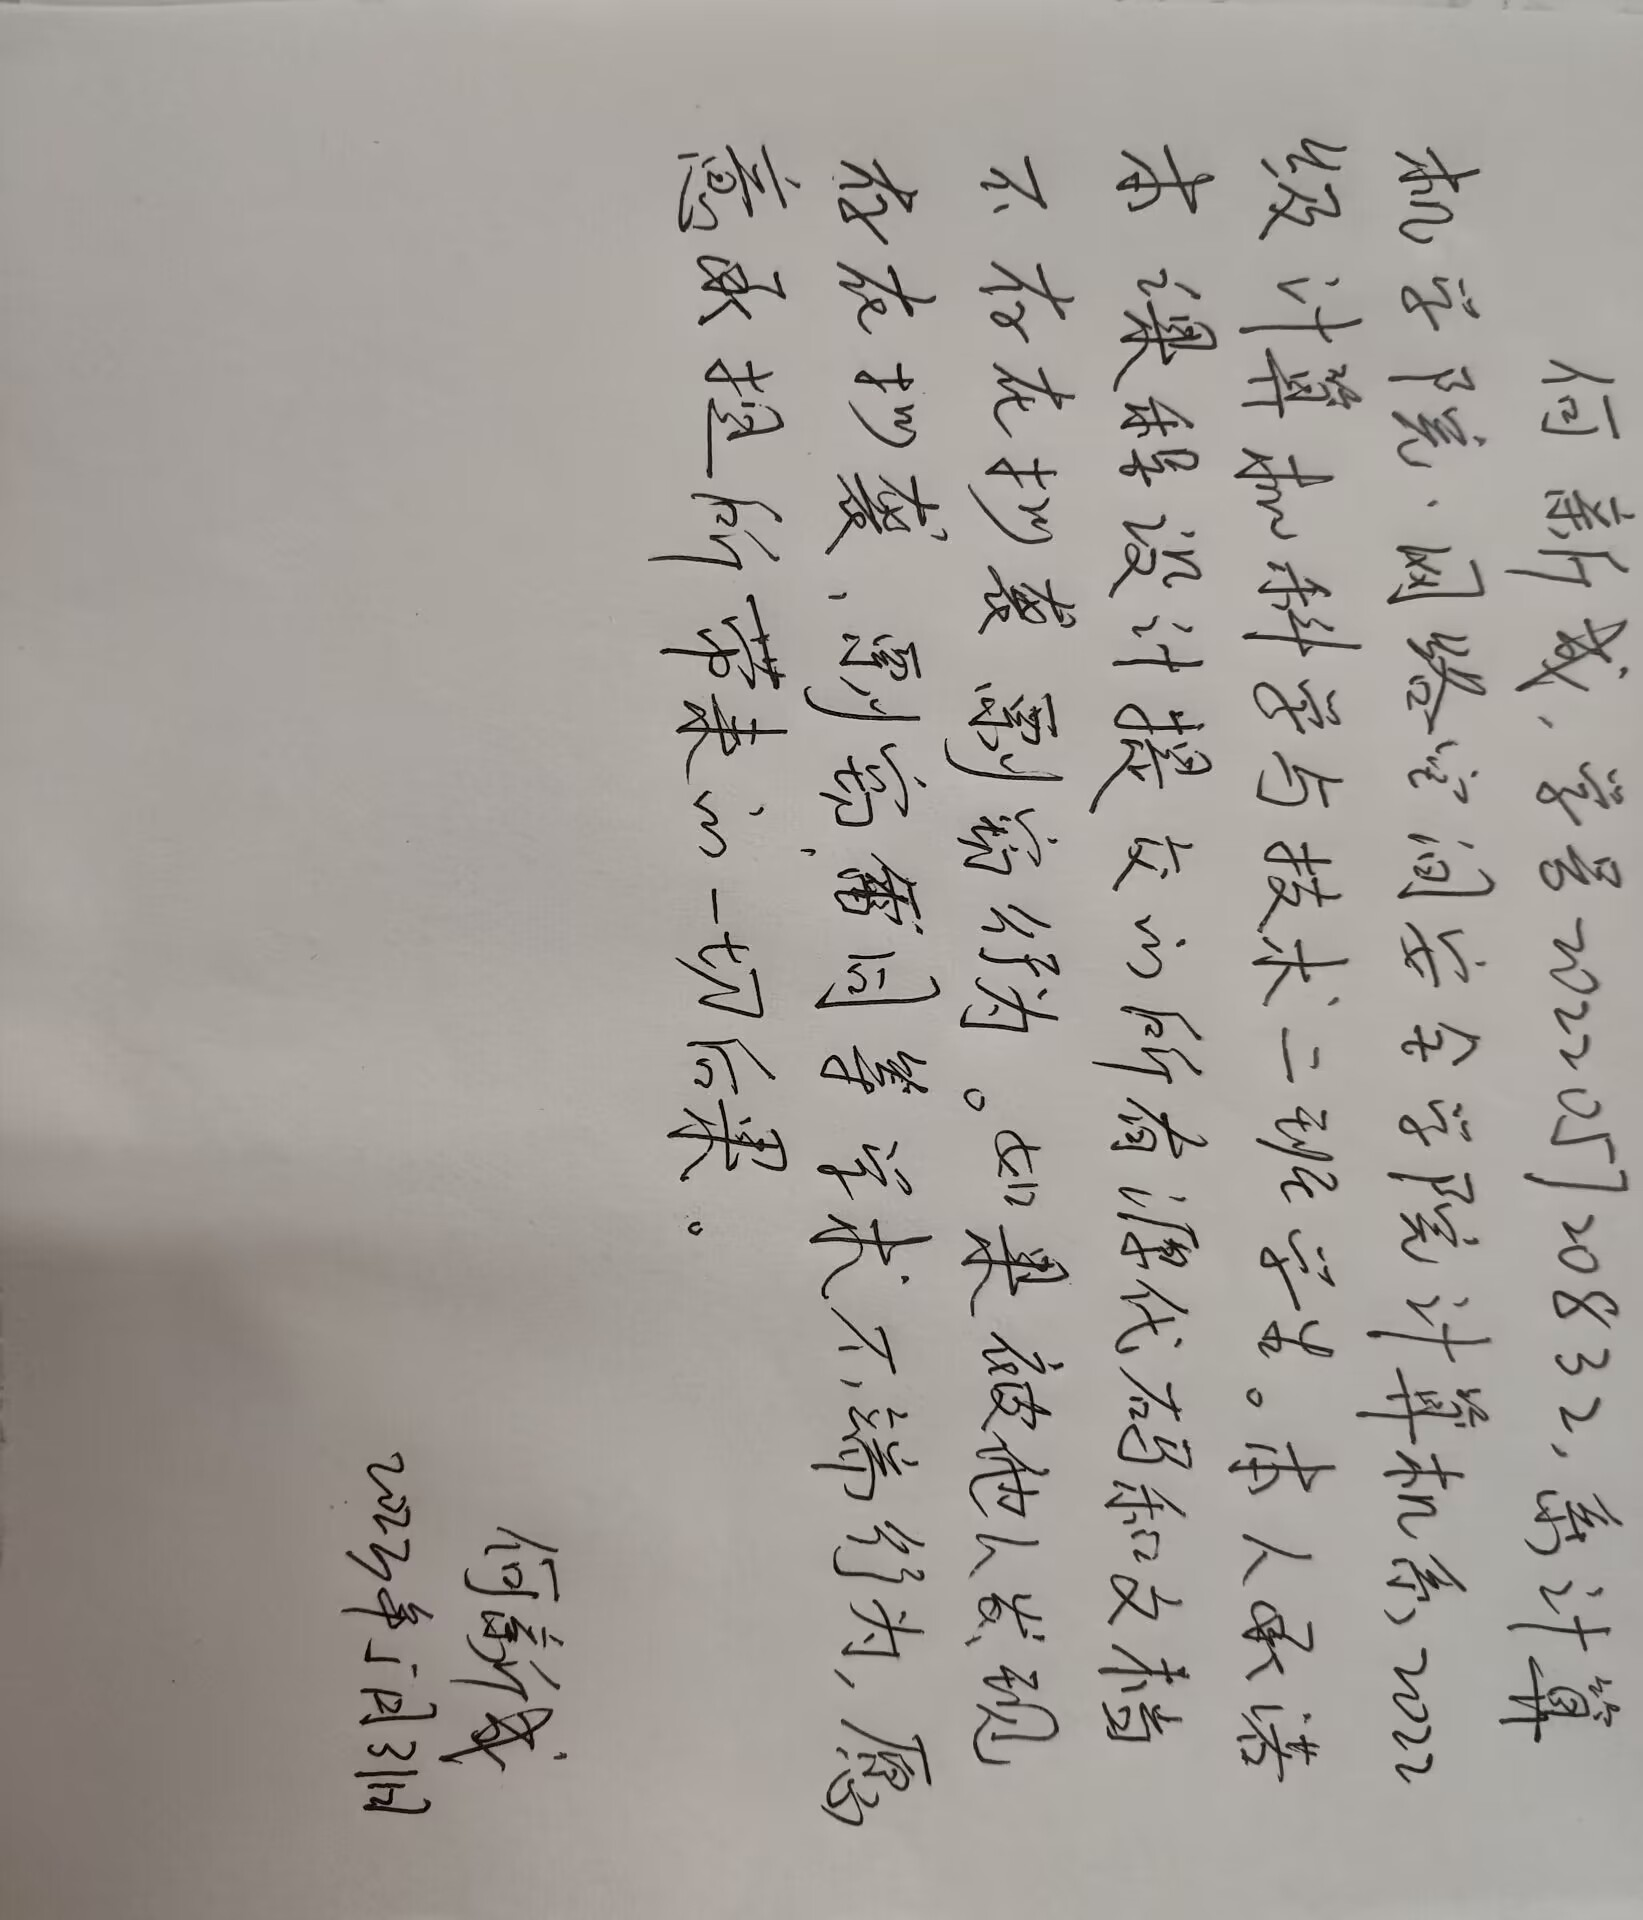 何新成，学号，系计算
机学院、网络空间安全学院计算机系2022
级计算机科学与技术二班学生。本人承诺
本课程设计提交的所有源代码和文档
不存在抄袭剽窃行为。如果被他人发现
存在抄袭、剽窃、雷同等学术不端行为，愿
意承担所带来的一切后果。
何新成
2023年5月31日